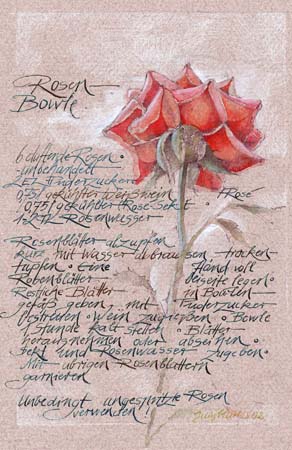 Rosen
Bowle
6 duftende Rosen.
unbehandelt
2 EL Puderzucker
0,75 l gekühlter Weißwein
0,75 l gekühlter Rosé Sekt • Rosé
1-2 TL Rosenwasser
Rosenblätter abzupfen
kurz mit Wasser abbrausen, trocken
tupfen • Eine Hand voll
Rosenblätter beiseite legen.
Restliche Blätter in Bowlen
gefäß geben, mit Puderzucker
bestreuen • Wein zugießen • Bowle
1 Stunde kalt stellen • Blätter
herausnehmen oder abseihen •
Sekt und Rosenwasser zugeben •
Mit übrigen Rosenblättern
garnieren
Unbedingt ungespritzte Rosen
verwenden!